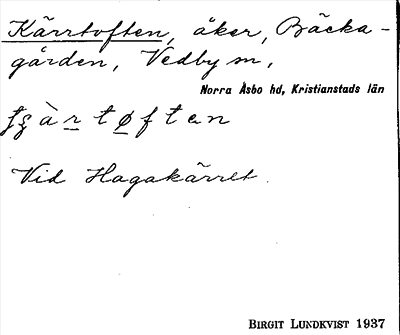 Kärrtoften, åker, Bäcka-
gården, Vedby sn,
Norra Åsbo hd, Kristianstads län
toften
Vid Hagakärret.
BIRGIT LUNDKVIST 1937